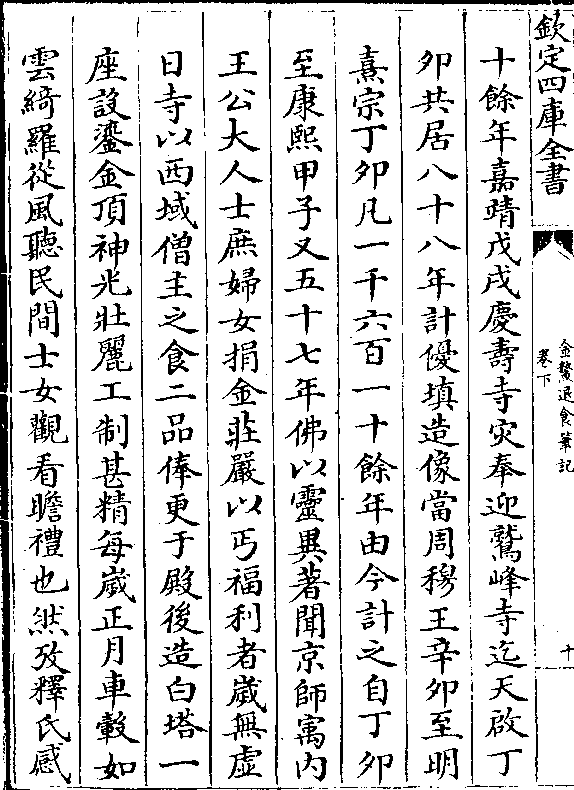 欽定四庫全書
金鰲退食筆記
卷下
十
十餘年嘉靖戊戌慶壽寺灾奉迎鷲峰寺迄天啟丁
卯共居八十八年計優填造像當周穆王辛卯至明
熹宗丁卯凡一千六百一十餘年由今計之自丁卯
至康熙甲子又五十七年佛以靈異著聞京師寓内
王公大人士庶婦女捐金莊嚴以丐福利者歲無虚
日寺以西域僧主之食二品俸更于殿後造白塔一
座設鎏金頂神光壯麗工制甚精每歲正月車轂如
雲綺羅從風聽民間士女觀看瞻禮也然攷釋氏感